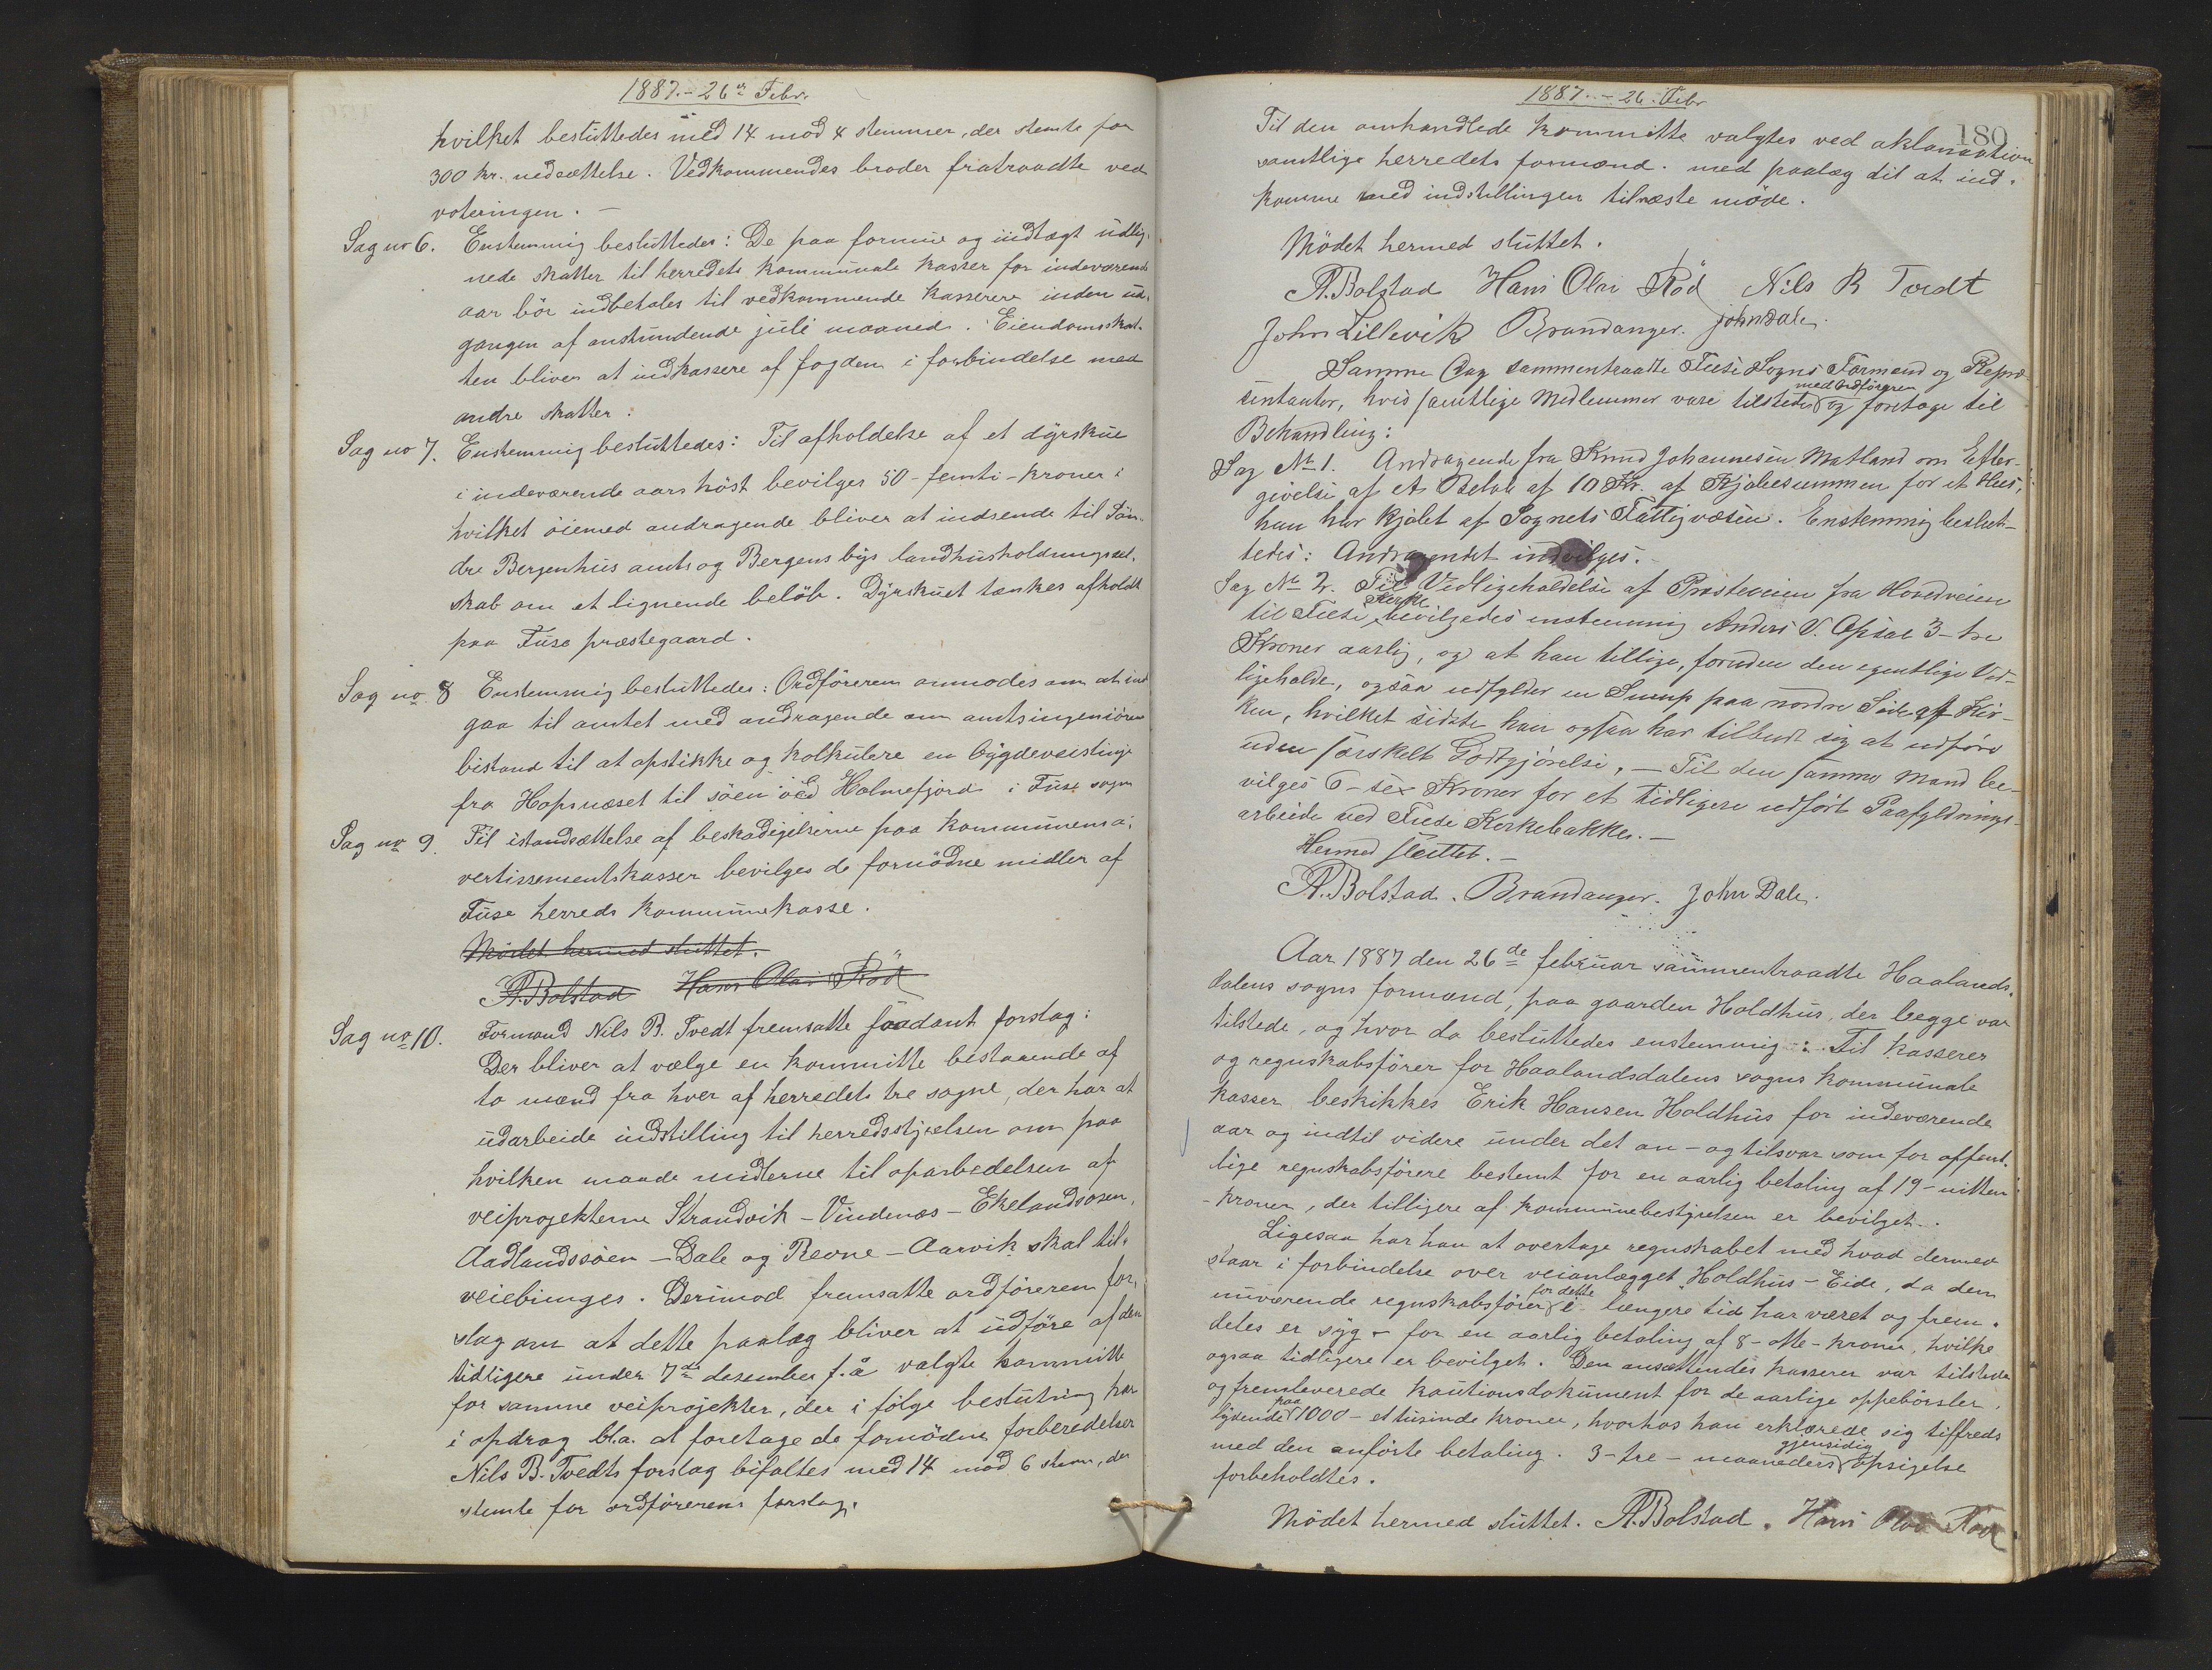 1887.- 26de Febr.
hvilket besluttedes med 14 mod 4 stemmer, der stemte for
300 kr. nedsættelse. Vedkommendes broder fratraadte ved
voteringen. -
Sag no 6. Enstemmig besluttedes: De paa formue og indtægt udlig-
nede skatter til herredets kommunale kasser for indeværende
aar bör indbetales til vedkommende kasserere inden ud-
gangen af anstundende juli maaned. Eiendomsskat-
ten bliver at indkassere af fogden i forbindelse med
andre skatter.
Sag no 7. Enstemmig besluttedes: Til afholdelse af et dyrskue
i indeværende aars höst bevilges 50 - femti - kroner i
hvilket öiemed andragende bliver at indsende til Sön-
dre Bergenhus amts og Bergens bys landhusholdningssel-
skab om et lignende belöb. Dyrskuet tænkes afholdt
paa Fuse præstegaard.
Sag no. 8 Enstemmig besluttedes: Ordföreren anmodes om at ind
gaa til amtet med andragende om amtsingeniörens
bistand til at opstikke og kalkulere en bygdeveislinje
fra Hopsnæset til söen ved Holmefjord i Fuse sogn
Sag no 9. Til istandsættelse af beskadigelserne paa kommunens a-
vertissementskasser bevilges de fornödne midler af
Fuse herreds kommunekasse.
Mödet hermed sluttet.
A. Bolstad Hans Olai Röd
Sag no 10. Formand Nils B. Tvedt fremsatte saadant forslag:
Der bliver at vælge en kommitte bestaaende af
to mænd fra hver af herredets tre sogne, der har at
udarbeide indstilling til herredsstyrelsen om paa
hvilken maade midlerne til oparbedelsen af
veiprojekterne Strandvik - Vindenæs - Ekelandsosen,
Aadlandssöen - Dale og Revne - Aarvik skal til-
veiebringes. Derimod fremsatte ordföreren for-
slag om at dette paalæg bliver at udföre af den
tidligere under 7de desember f. å valgte kommitte
for samme veiprojekter, der i fölge beslutning har
i opdrag bl.a. at foretage de fornödne forberedelser
Nils B. Tvedts forslag bifaltes med 14 mod 6 stem, der
stemte for ordförerens forslag.
1887. - 26. Febr
180
Til den omhandlede kommitte valgtes ved aklamation
samtlige herredets formænd. med paalæg til at ind-
komme med indstillingen til næste möde.
Mödet hermed sluttet.
A. Bolstad Hans Olai Röd Nils B Tvedt
John Lillevik Brandanger. John Dale.
Samme Dag sammentraadte Fuse Sogns Formænd og Repræ-
sentanter, hvis samtlige Medlemmer vare tilstede med Ordföreren og foretoge til
Behandling:
Sag No 1. Andragende fra Knud Johannesen Matland om Efter-
givelse af et Beløb af 10 Kr. af Kjøbesummen for et Hus,
han har kjøbt af Sognets Fattigvæsen. Enstemmig beslut-
tedes: Andragendet indvilges.
Sag No 2. Til Vedligeholdelse af Præsteveien fra Hovedveien
til Fuse Kirke bevilgedes enstemmig Anders V. Opsal 3 - tre
Kroner aarlig, og at han tillige, foruden den egentlige Ved-
ligeholde, ogsaa udfylder en Sump paa nordre Side af Kir-
ken, hvilket sidste han ogsaa har tilbudt sig at udføre
uden særskelt Godtgjørelse, - Til den samme Mand be-
vilges 6 - sex Kroner for et tidligere udført Paafyldnings-
arbeide ved Fuse Kirkebakke. -
Hermed sluttet. -
A. Bolstad. Brandanger. John Dale.
Aar 1887 den 26de februar sammentraadte Haalands-
dalens sogns formænd, paa gaarden Holdhus, der begge var
tilstede, og hvor da besluttedes enstemmig: Til kasserer
og regnskabsförer for Haalandsdalens sogns kommunale
kasser beskikkes Erik Hansen Holdhus for indeværende
aar og indtil videre under det an- og tilsvar som for offent-
lige regnskabsförere bestemt for en aarlig betaling af 19 - nitten
- kroner, der tilligere af kommunebestyrelsen er bevilget.
Ligesaa har han at overtage regnskabet med hvad dermed
staar i forbindelse over veianlægget Holdhus - Eide, da den
nuværende regnskabsförer for dette i længere tid har været og frem-
deles er syg - for en aarlig betaling af 8 - otte - kroner, hvilke
ogsaa tidligere er bevilget. Den ansættendes kasserer var tilstede
og fremleverede kautionsdokument for de aarlige oppebörsler,
lydende paa 1000 - et tusinde kroner, hvorhos han erklærede sig tilfreds
med den anförte betaling. 3 - tre - maaneders gjensidig opsigelse
forbeholdtes.
Mödet hermed sluttet. A. Bolstad. Hans Olai Röd